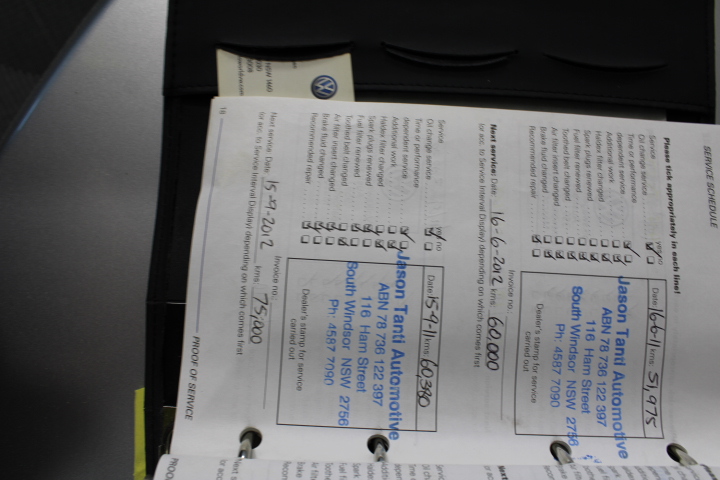 SERVICE SCHEDULE
Please tick appropriately in each line!
Service yes/no
Oil change service
Time or performance
dependent service
Additional work
Haldex filter changed
Spark plugs renewed
Fuel filter renewed
Toothed belt changed
Air filter insert changed
Brake fluid changed
Recommended repair
Date 16-6-11 kms: 51,975
Jason Tanti Automotive
ABN 78 736 122 397
116 Ham Street
South Windsor NSW 2756
Ph: 4587 7090
Dealer's stamp for service
carried out
Invoice no.:
Next service: Date 16-6-2012 kms: 60,000
(or acc. to Service Interval Display) depending on which comes first
Service yes/no
Oil change service
Time or performance
dependent service
Additional work
Haldex filter changed
Spark plugs renewed
Fuel filter renewed
Toothed belt changed
Air filter insert changed
Brake fluid changed
Recommended repair
Date 15-9-11 kms: 60,380
Jason Tanti Automotive
ABN 78 736 122 397
116 Ham Street
South Windsor NSW 2756
Ph: 4587 7090
Dealer's stamp for service
carried out
Invoice no.:
Next service: Date 15-9-2012 kms: 75,000
(or acc. to Service Interval Display) depending on which comes first
18
PROOF OF SERVICE